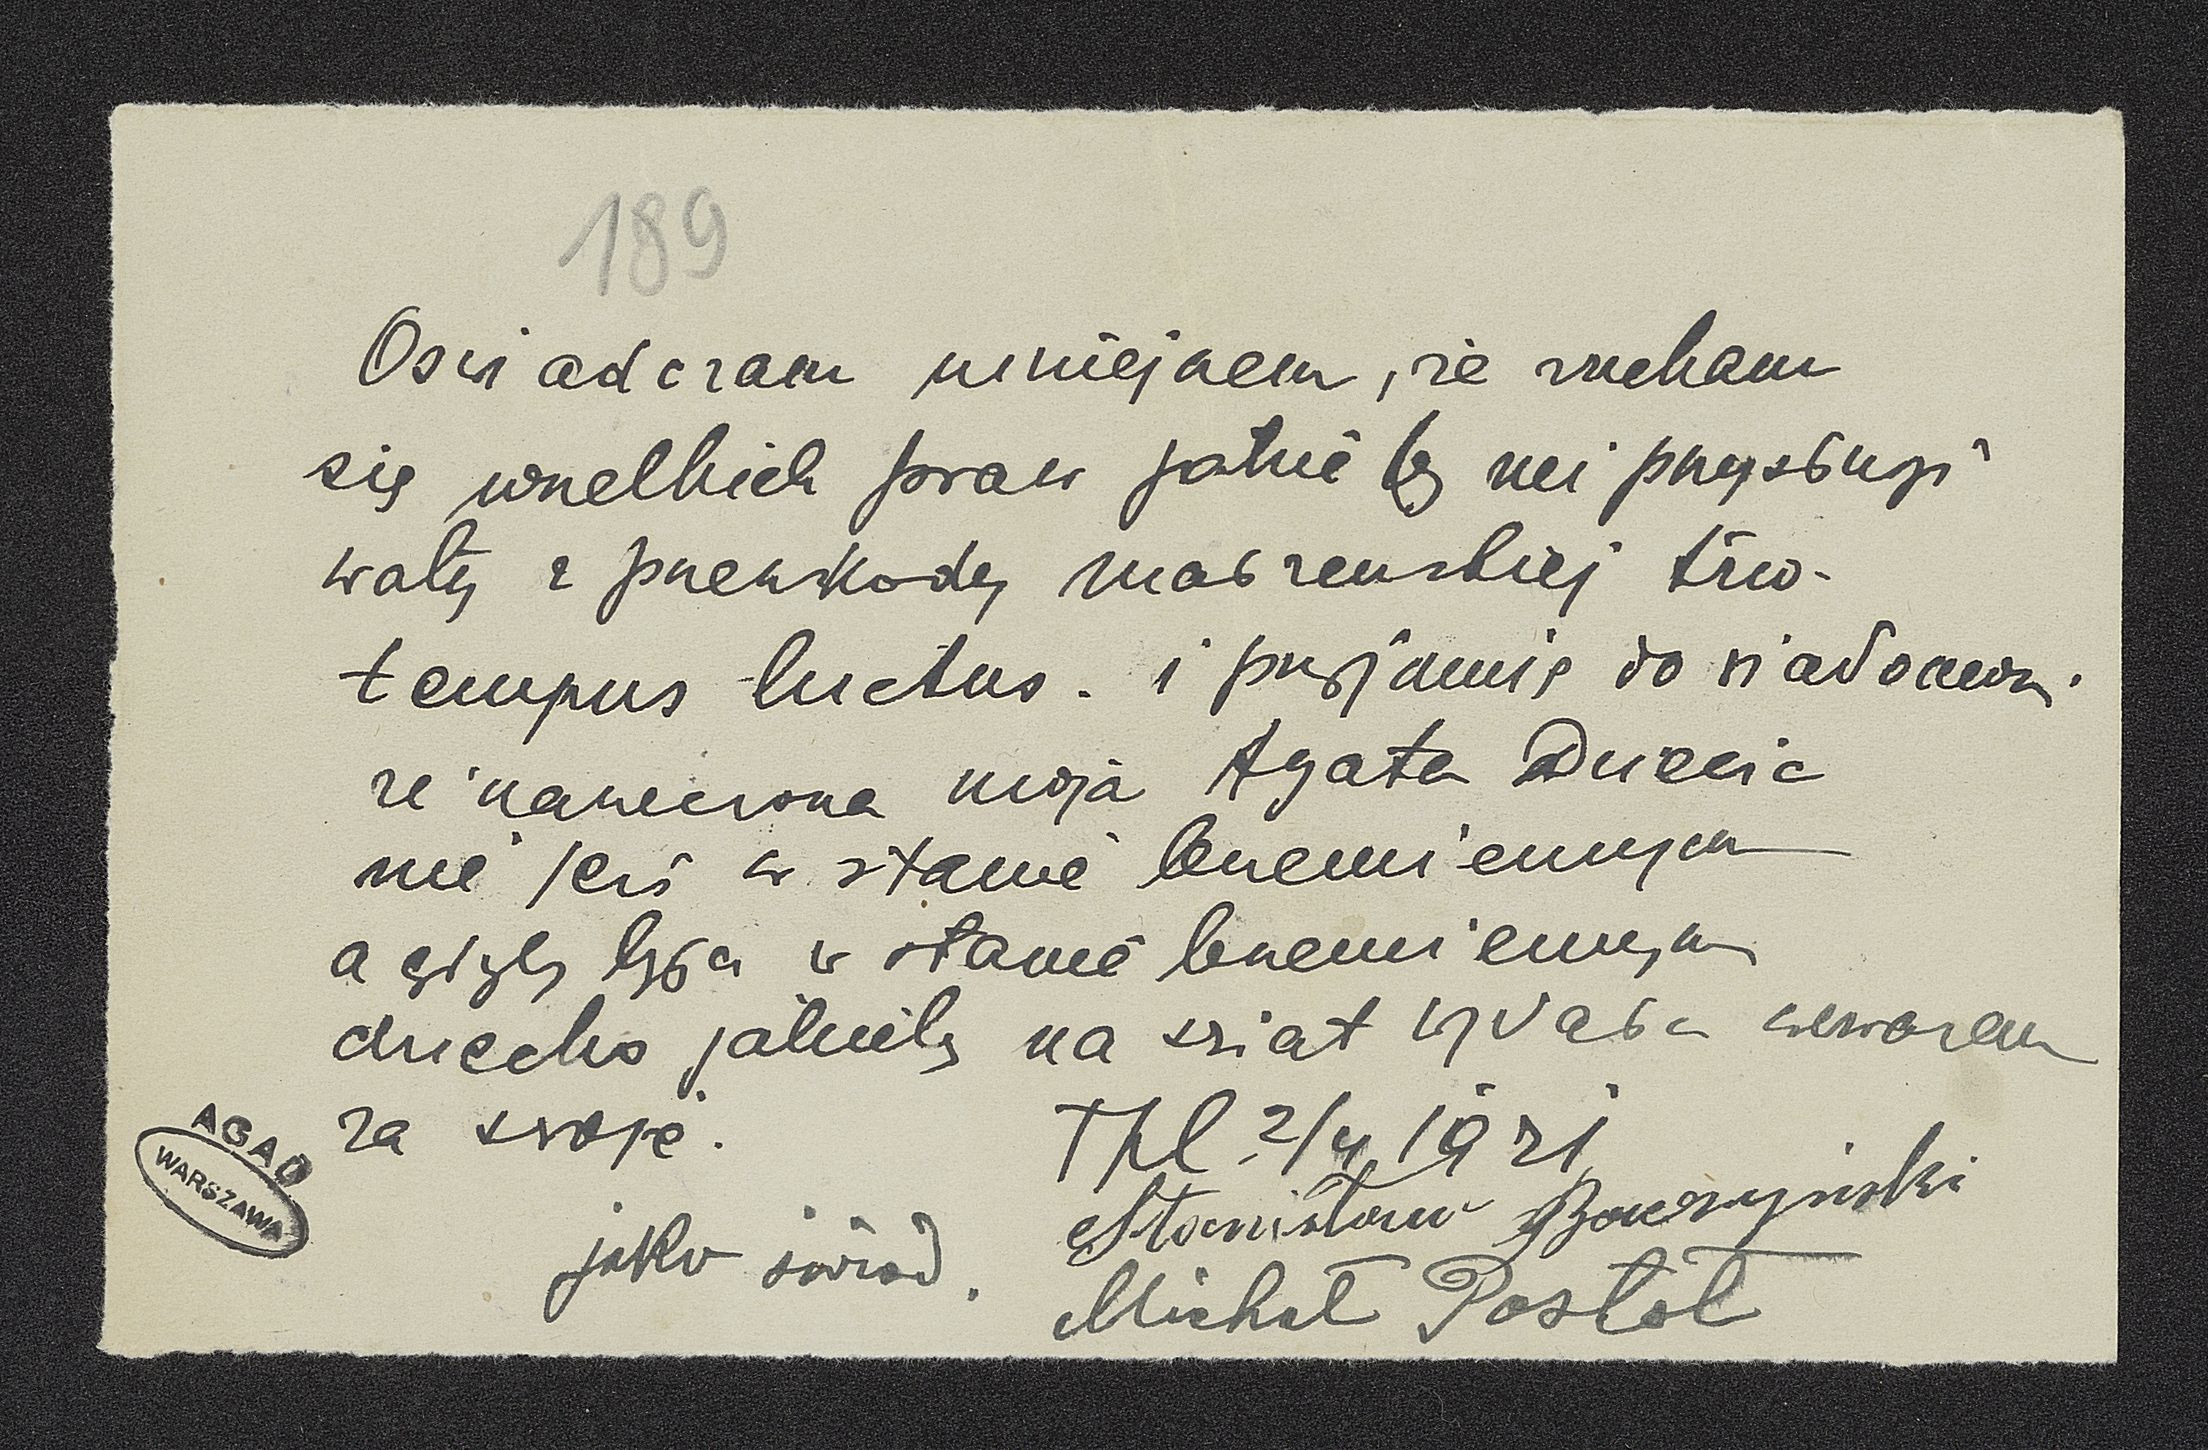 189
Oswiadczam niniejszem, że zrzekam
się wszelkich praw jakie by mi przysługi
wały z przeszkody małżenskiej t.zw.
tempus luctus. i przyjmuję do wiadomosci
że narzeczona moja Agata
nie jest w stanie brzemiennym
a gdyby była w stanie brzemiennym
dziecko jakieby na swiat wydała uwazam
za swoje.
Tpl. 2/4 1931
Stanisław Baczyński
jako świad. Michał Postół
AGAD
WARSZAWA